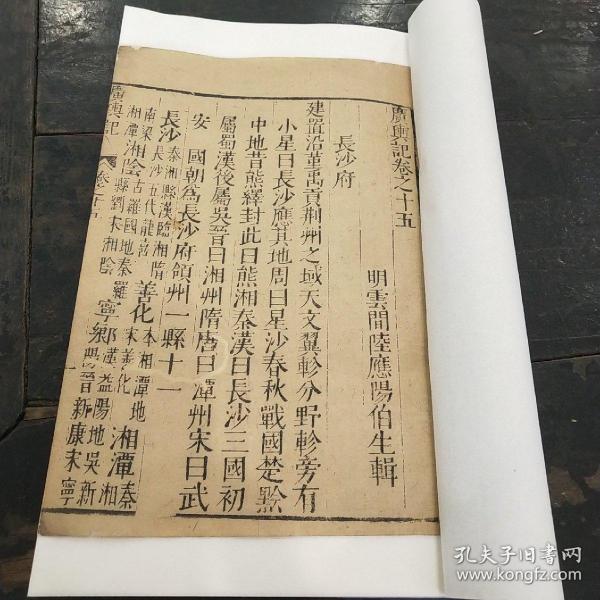 廣輿記卷之十五
明雲間陸應陽伯生輯
長沙府
建置沿革禹貢荆州之域天文翼軫分野軫旁有
小星曰長沙應其地周曰星沙春秋戰國楚黔
中地昔熊繹封此曰熊湘秦漢曰長沙三國初
屬蜀漢後屬吳晉曰湘州隋唐曰潭州宋曰武
安 國朝爲長沙府領州一縣十一
長沙 秦湘縣漢臨湘隋長沙五代龍喜 善化 本湘潭地宋善化 湘潭 秦湘
南梁湘潭 湘陰 古羅國地秦羅縣劉宋湘陰 寧鄉 漢益陽地吳新陽晉新康宋寧
廣輿記
卷之十五
一
孔夫子旧书网
www.kongfz.com